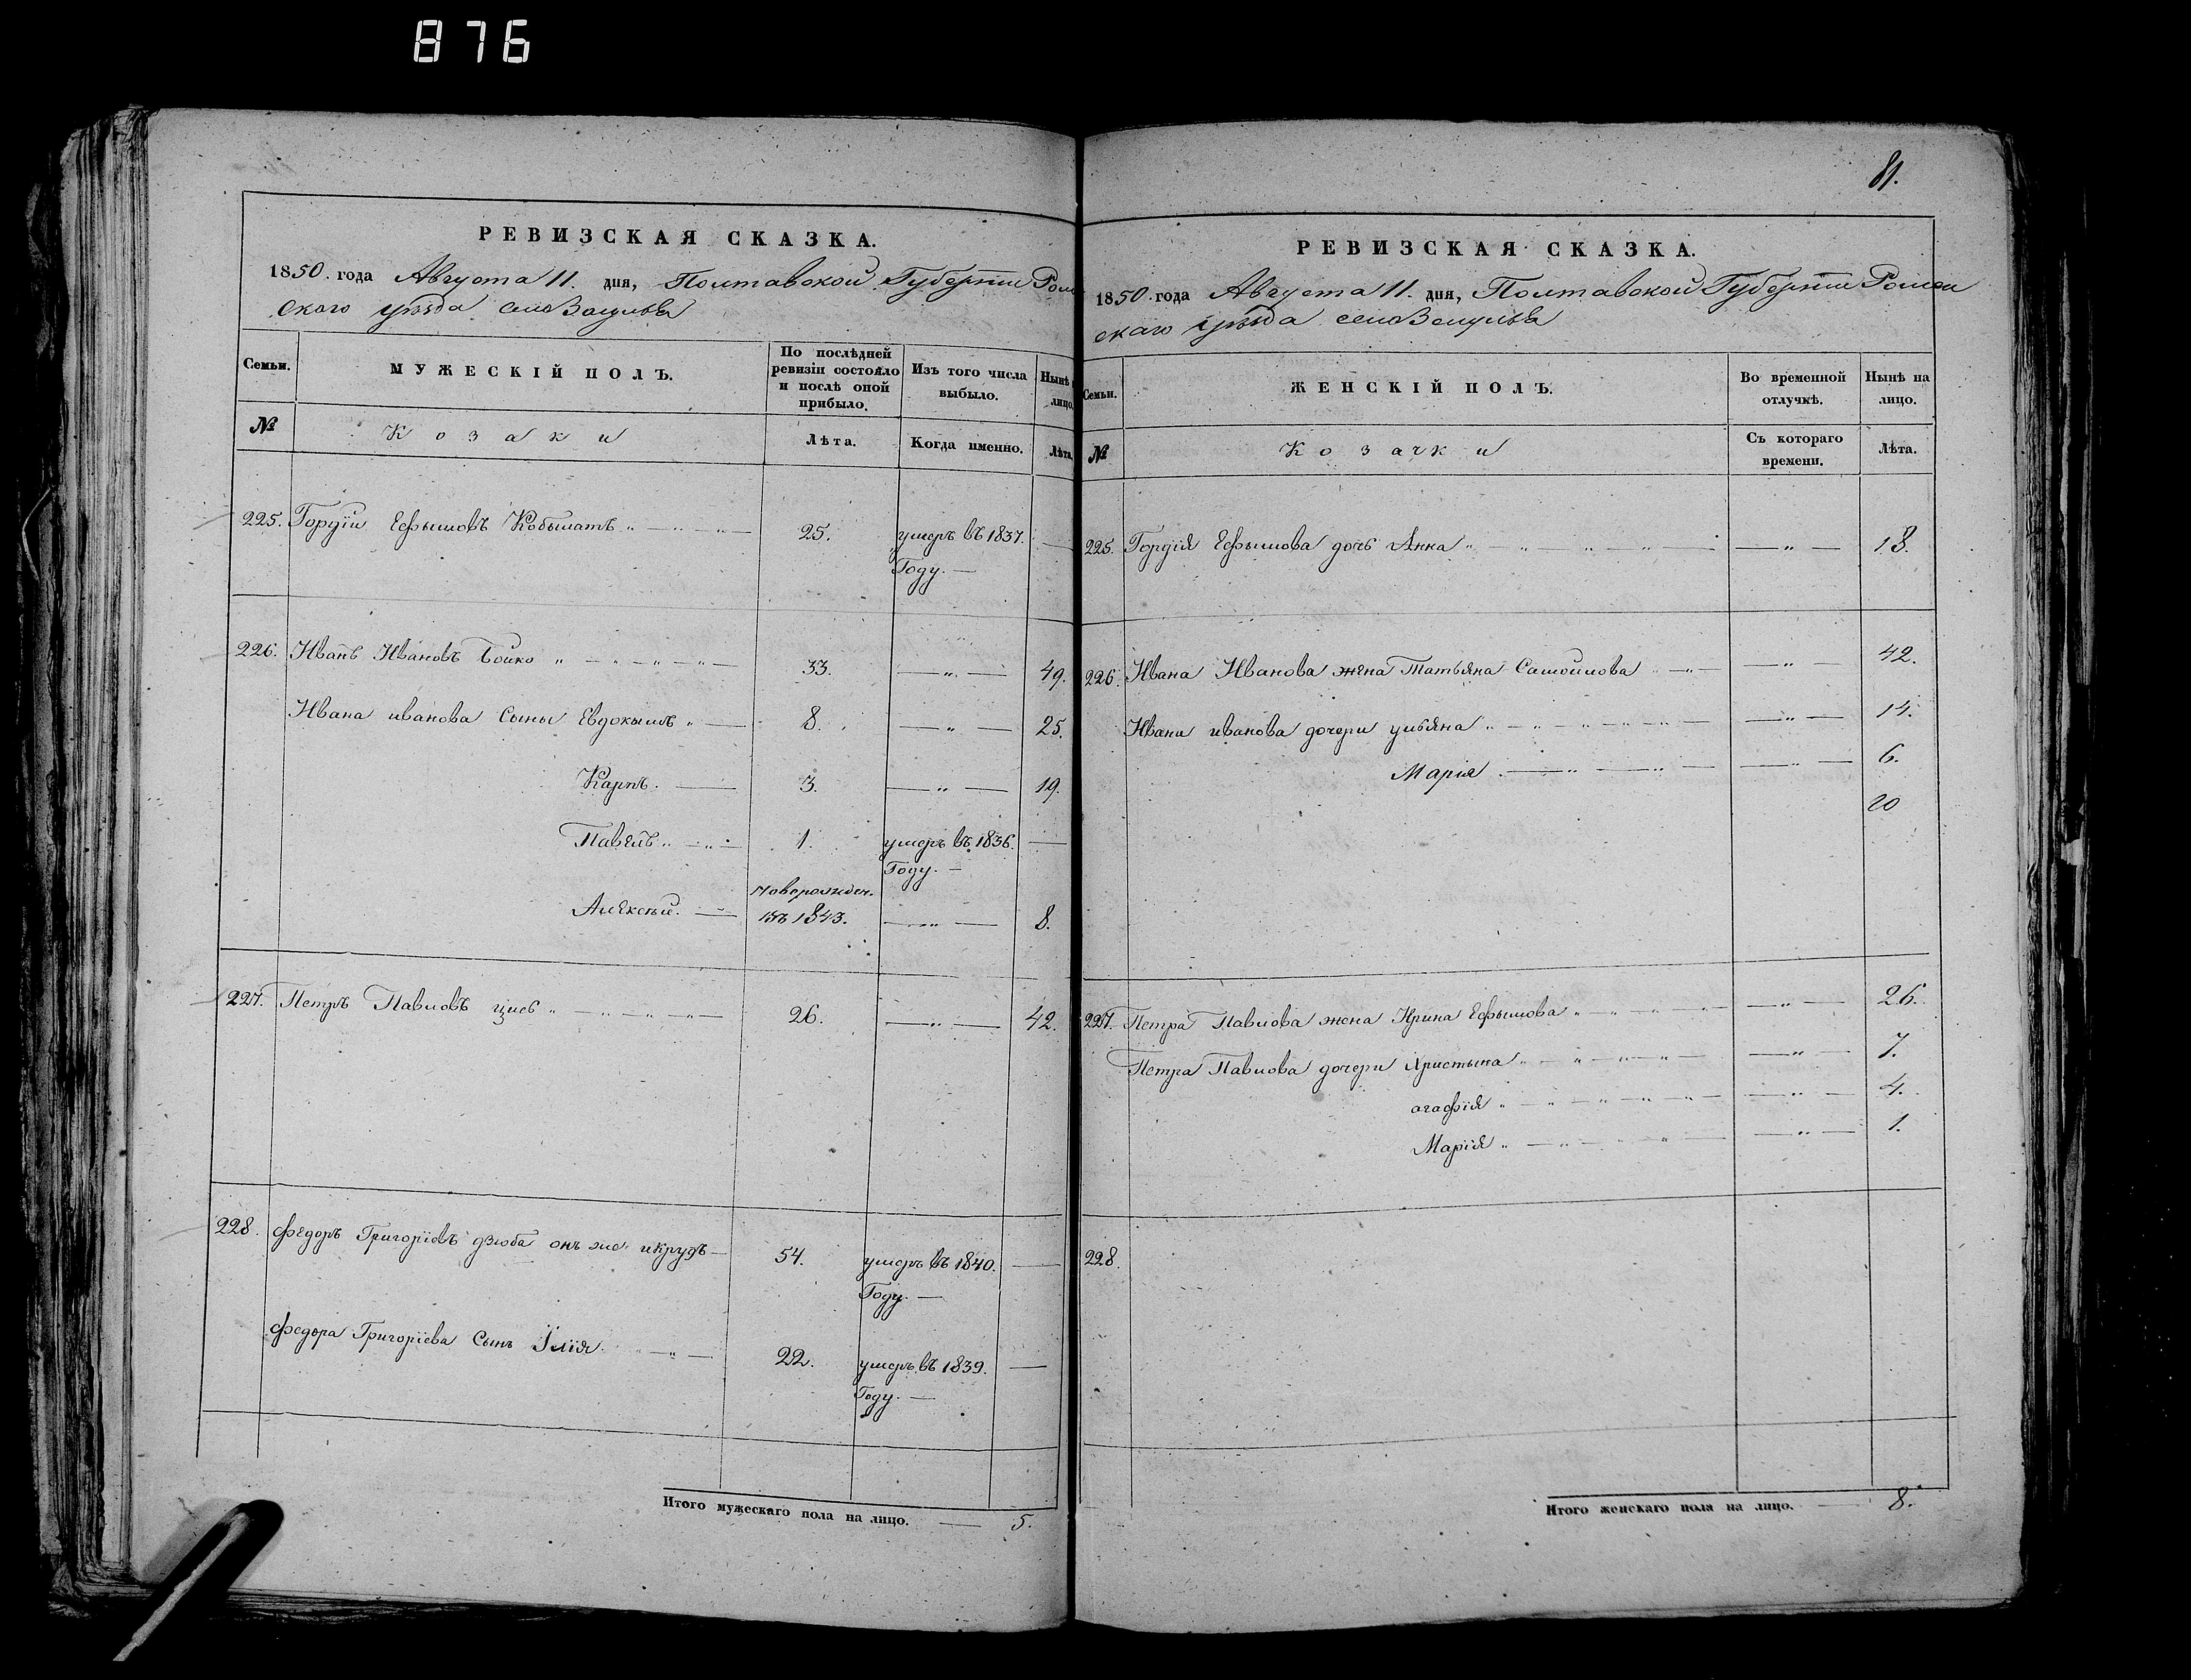 876
РЕВИЗСКАЯ СКАЗКА.
1850. года Августа 11. дня, Полтавской Губернии Ром
скаго уѣзда село Засулья
Семьи. МУЖЕСКІЙ ПОЛЪ. По послѣдней ревизіи состояло и послѣ оной прибыло. Изъ того числа выбыло. Нынѣ лицо.
№ Козаки Лѣта. Когда именно. Лѣта.
225. Гордѣй Ефимовъ „ — „ — 25. умеръ въ 1837. —
Году. —
226. Иванъ Ивановъ Бойко „ — „ — „ — „ — 33. — „ — 49.
Ивана иванова Сыны Евдокимъ „ — 8. — „ — 25.
Карпъ. — 3. — „ — 19.
Павелъ „ — „ — 1. умеръ въ 1836. —
Году. —
новорожден.
Алексѣй. — въ 1843. — „ — 8.
227. Петръ Павловъ „ — „ — „ — „ — 26. — „ — 42.
228. Федоръ Григоріевъ дзюба онъ же — 54. умеръ въ 1840. —
Году. —
Федора Григоріева Сынъ Ілія. — „ — 22. умеръ въ 1839. —
Году. —
Итого мужескаго пола на лицо. — 5.
81.
РЕВИЗСКАЯ СКАЗКА.
1850. года Августа 11. дня, Полтавской Губерніи Ромен
скаго уѣзда село Засулья
Семьи. ЖЕНСКІЙ ПОЛЪ. Во временной отлучкѣ. Нынѣ на лицо.
№ Козачки Съ котораго времени. Лѣта.
225. Гордѣя Ефимова дочь Анна „ — „ — „ — „ — — „ — 18.
226. Ивана Иванова жена Татьяна Самойлова — „ — — „ — 42.
Ивана иванова дочери ульяна „ — „ — „ — „ — — „ — 14.
Марія. — „ — „ — — „ — 6.
20
227. Петра Павлова жена Ирина Ефимова „ — „ — „ — — „ — 26.
Петра Павлова дочери Христына „ — „ — „ — — „ — 7.
агафія „ — „ — „ — „ — — „ — 4.
Марія „ — „ — „ — — „ — 1.
228.
Итого женскаго пола на лицо. — 8.